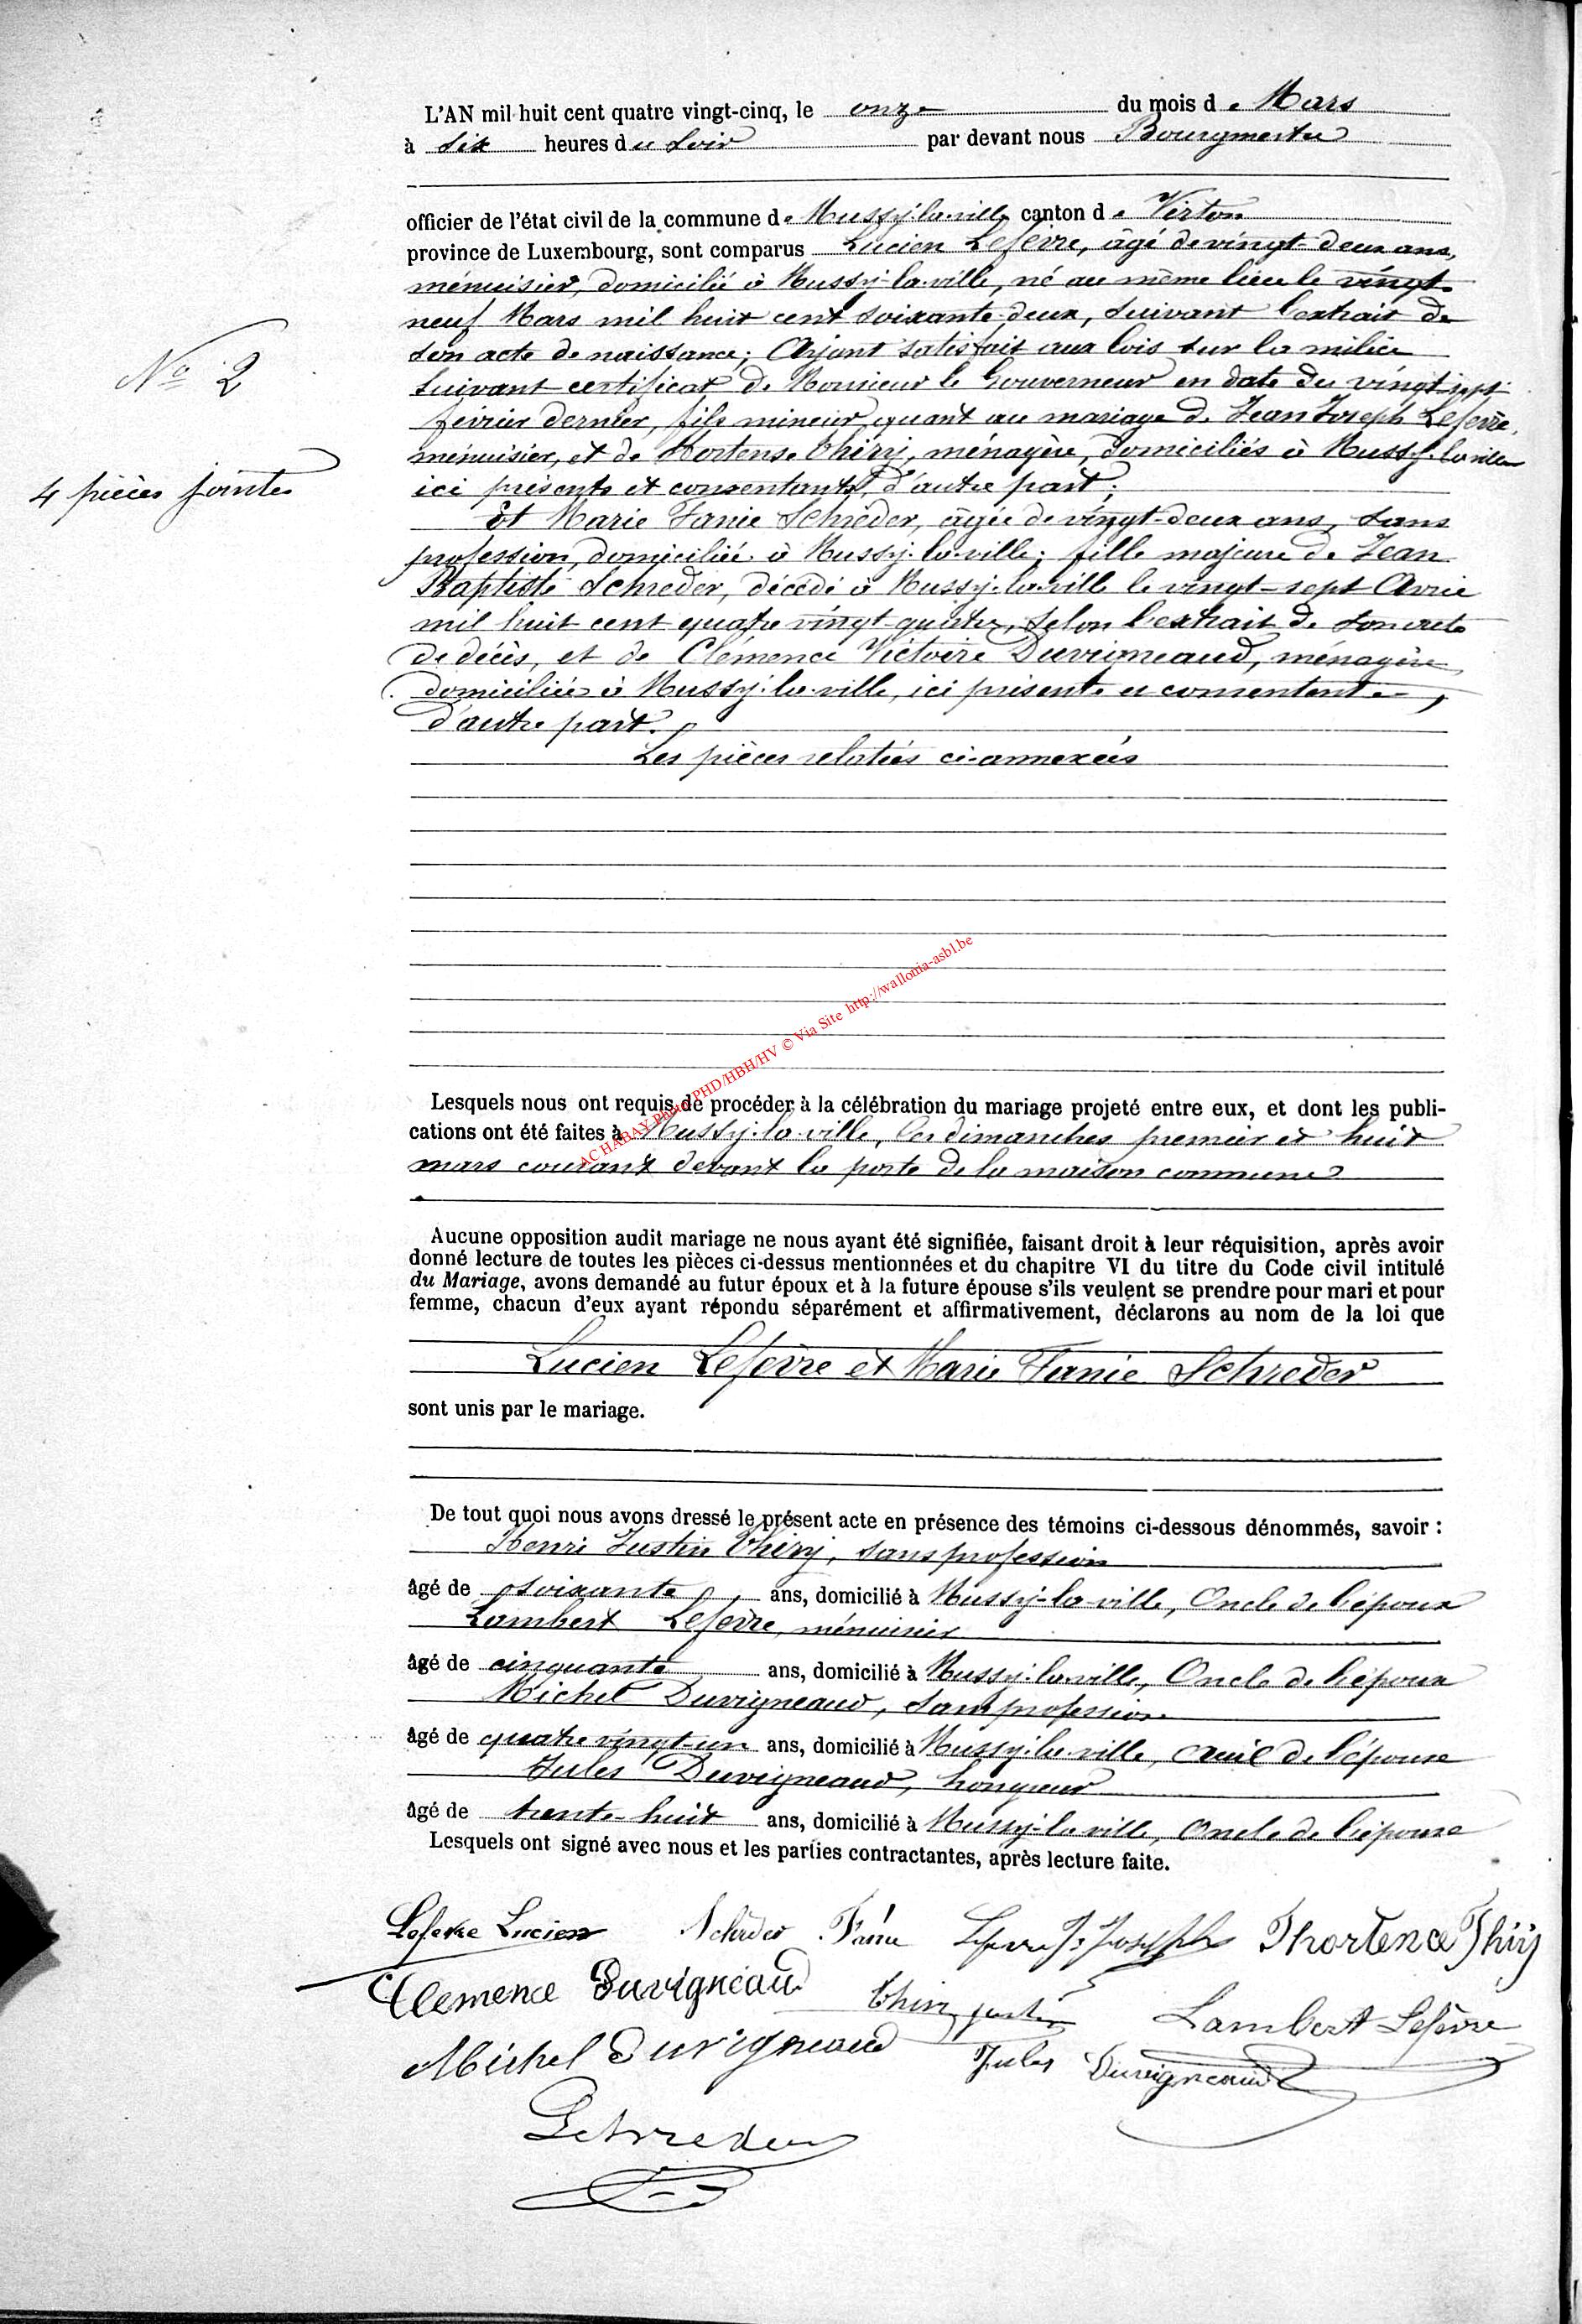 L'AN mil huit cent quatre vingt-cinq, le onze du mois de Mars
à six heures du soir par devant nous Bourgmestre
officier de l'état civil de la commune de Mussy-la-ville canton de Virton
province de Luxembourg, sont comparus Lucien Lefèvre, âgé de vingt-deux ans,
ménuisier, domicilié à Mussy-la-ville, né au même lieu le vingt
neuf Mars mil huit cent soixante-deux, suivant l'extrait de
son acte de naissance; Ayant satisfait aux lois sur la milice
suivant certificat de Monsieur le Gouverneur en date du vingt sept
N° 2
février dernier, fils mineur quant au mariage de Jean Joseph Lefèvre,
ménuisier, et de Hortense Thiry, ménagère, domiciliés à Mussy-la-ville
4 pièces jointes
ici présents et consentants, d'autre part;
Et Marie Fanie Schréder, âgée de vingt-deux ans, sans
profession, domiciliée à Mussy-la-ville; fille majeure de Jean
Baptiste Schreder, décédé à Mussy-la-ville le vingt-sept Avril
mil huit cent quatre vingt-quatre, selon l'extrait de son acte
de décès, et de Clémence Victoire Duvigneaud, ménagère
domiciliée à Mussy-la-ville, ici présente et consentente,
d'autre part.
Les pièces relatées ci-annexées
AC HABAY Photo PHD/HBH/HV © Via Site http://wallonia-asbl.be
Lesquels nous ont requis de procéder à la célébration du mariage projeté entre eux, et dont les publi-
cations ont été faites à Mussy-la-ville, les dimanches premier et huit
mars courant devant la porte de la maison commune
Aucune opposition audit mariage ne nous ayant été signifiée, faisant droit à leur réquisition, après avoir
donné lecture de toutes les pièces ci-dessus mentionnées et du chapitre VI du titre du Code civil intitulé
du Mariage, avons demandé au futur époux et à la future épouse s'ils veulent se prendre pour mari et pour
femme, chacun d'eux ayant répondu séparément et affirmativement, déclarons au nom de la loi que
Lucien Lefèvre et Marie Fanie Schreder
sont unis par le mariage.
De tout quoi nous avons dressé le présent acte en présence des témoins ci-dessous dénommés, savoir :
Henri Justin Thiry, sans profession
âgé de soixante ans, domicilié à Mussy-la-ville, Oncle de l'époux
Lambert Lefèvre, ménuisier
âgé de cinquante ans, domicilié à Mussy-la-ville, Oncle de l'époux
Michel Duvigneaud, sans profession
âgé de quatre vingt-un ans, domicilié à Mussy-la-ville, de l'épouse
Jules Duvigneaud, hongreur
âgé de trente-huit ans, domicilié à Mussy-la-ville, Oncle de l'épouse
Lesquels ont signé avec nous et les parties contractantes, après lecture faite.
Lefevre Lucien Schréder Fanie Lefevre J. Joseph Thiry
Clemence Duvigneaud Thiry justin Lambert Lefèvre
Michel Duvigneaud Jules Duvigneaud